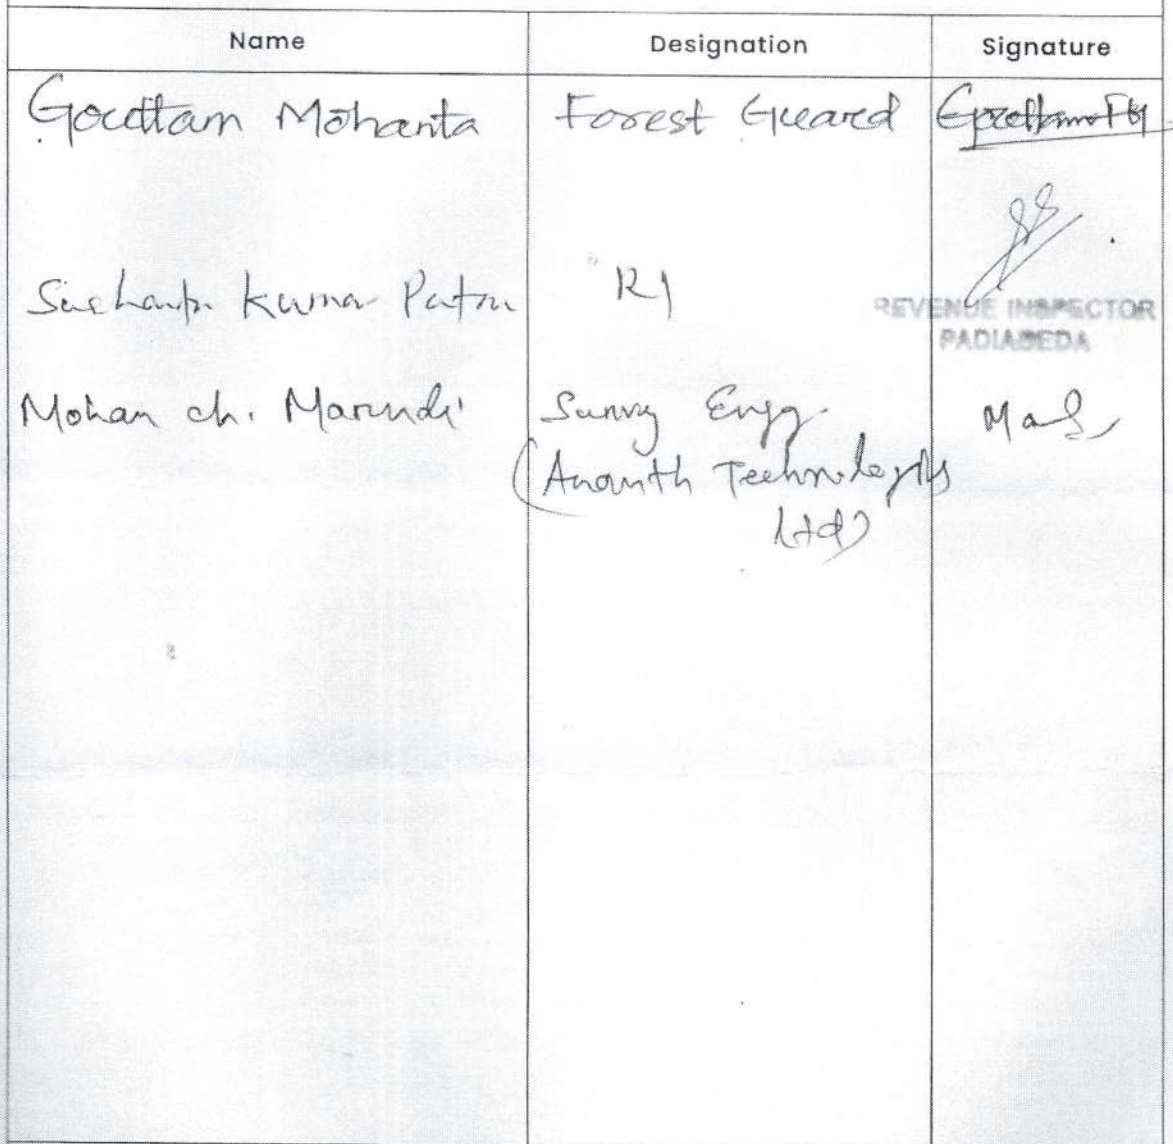 Name Designation Signature
Gouttam Mohanta Forest Guard
Kumar Patra RI
REVENUE INSPECTOR
PADIABEDA
Mohan ch. Marndi Survey Engg.
(Ananth Technologies
Ltd)